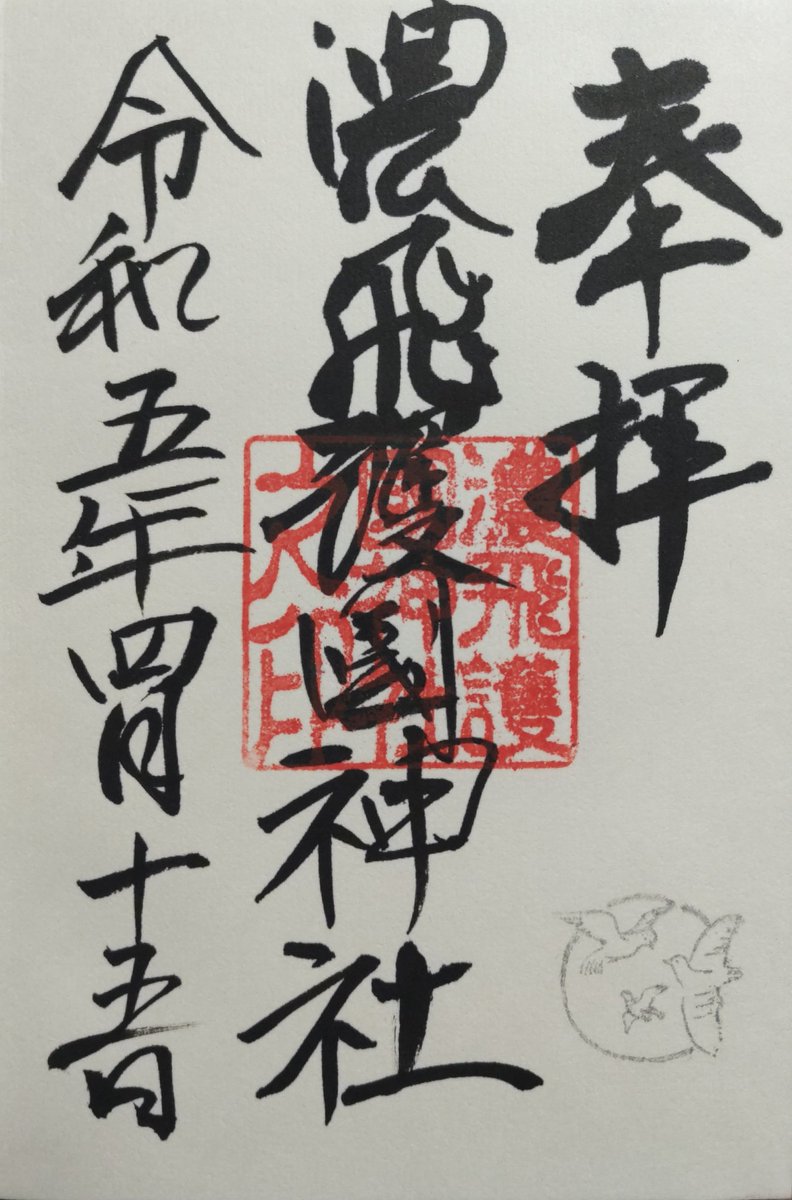 奉拝
濃飛護國神社
濃飛護
國神社
之印
令和五年四月十五日